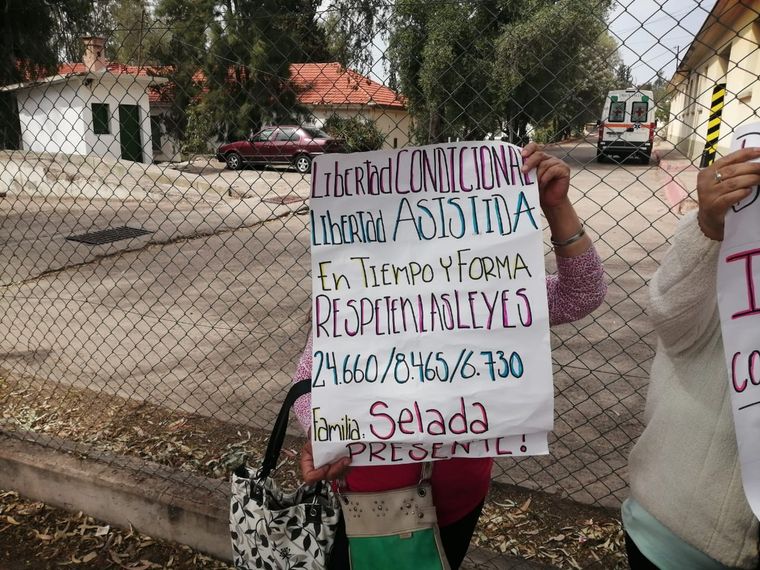 Libertad CONDICIONAL
Libertad ASISTIDA
En TIEMPO Y FORMA
RESPETEN LAS LEYES
24.660/8.465/6.730
Familia: Selada
PRESENTE!